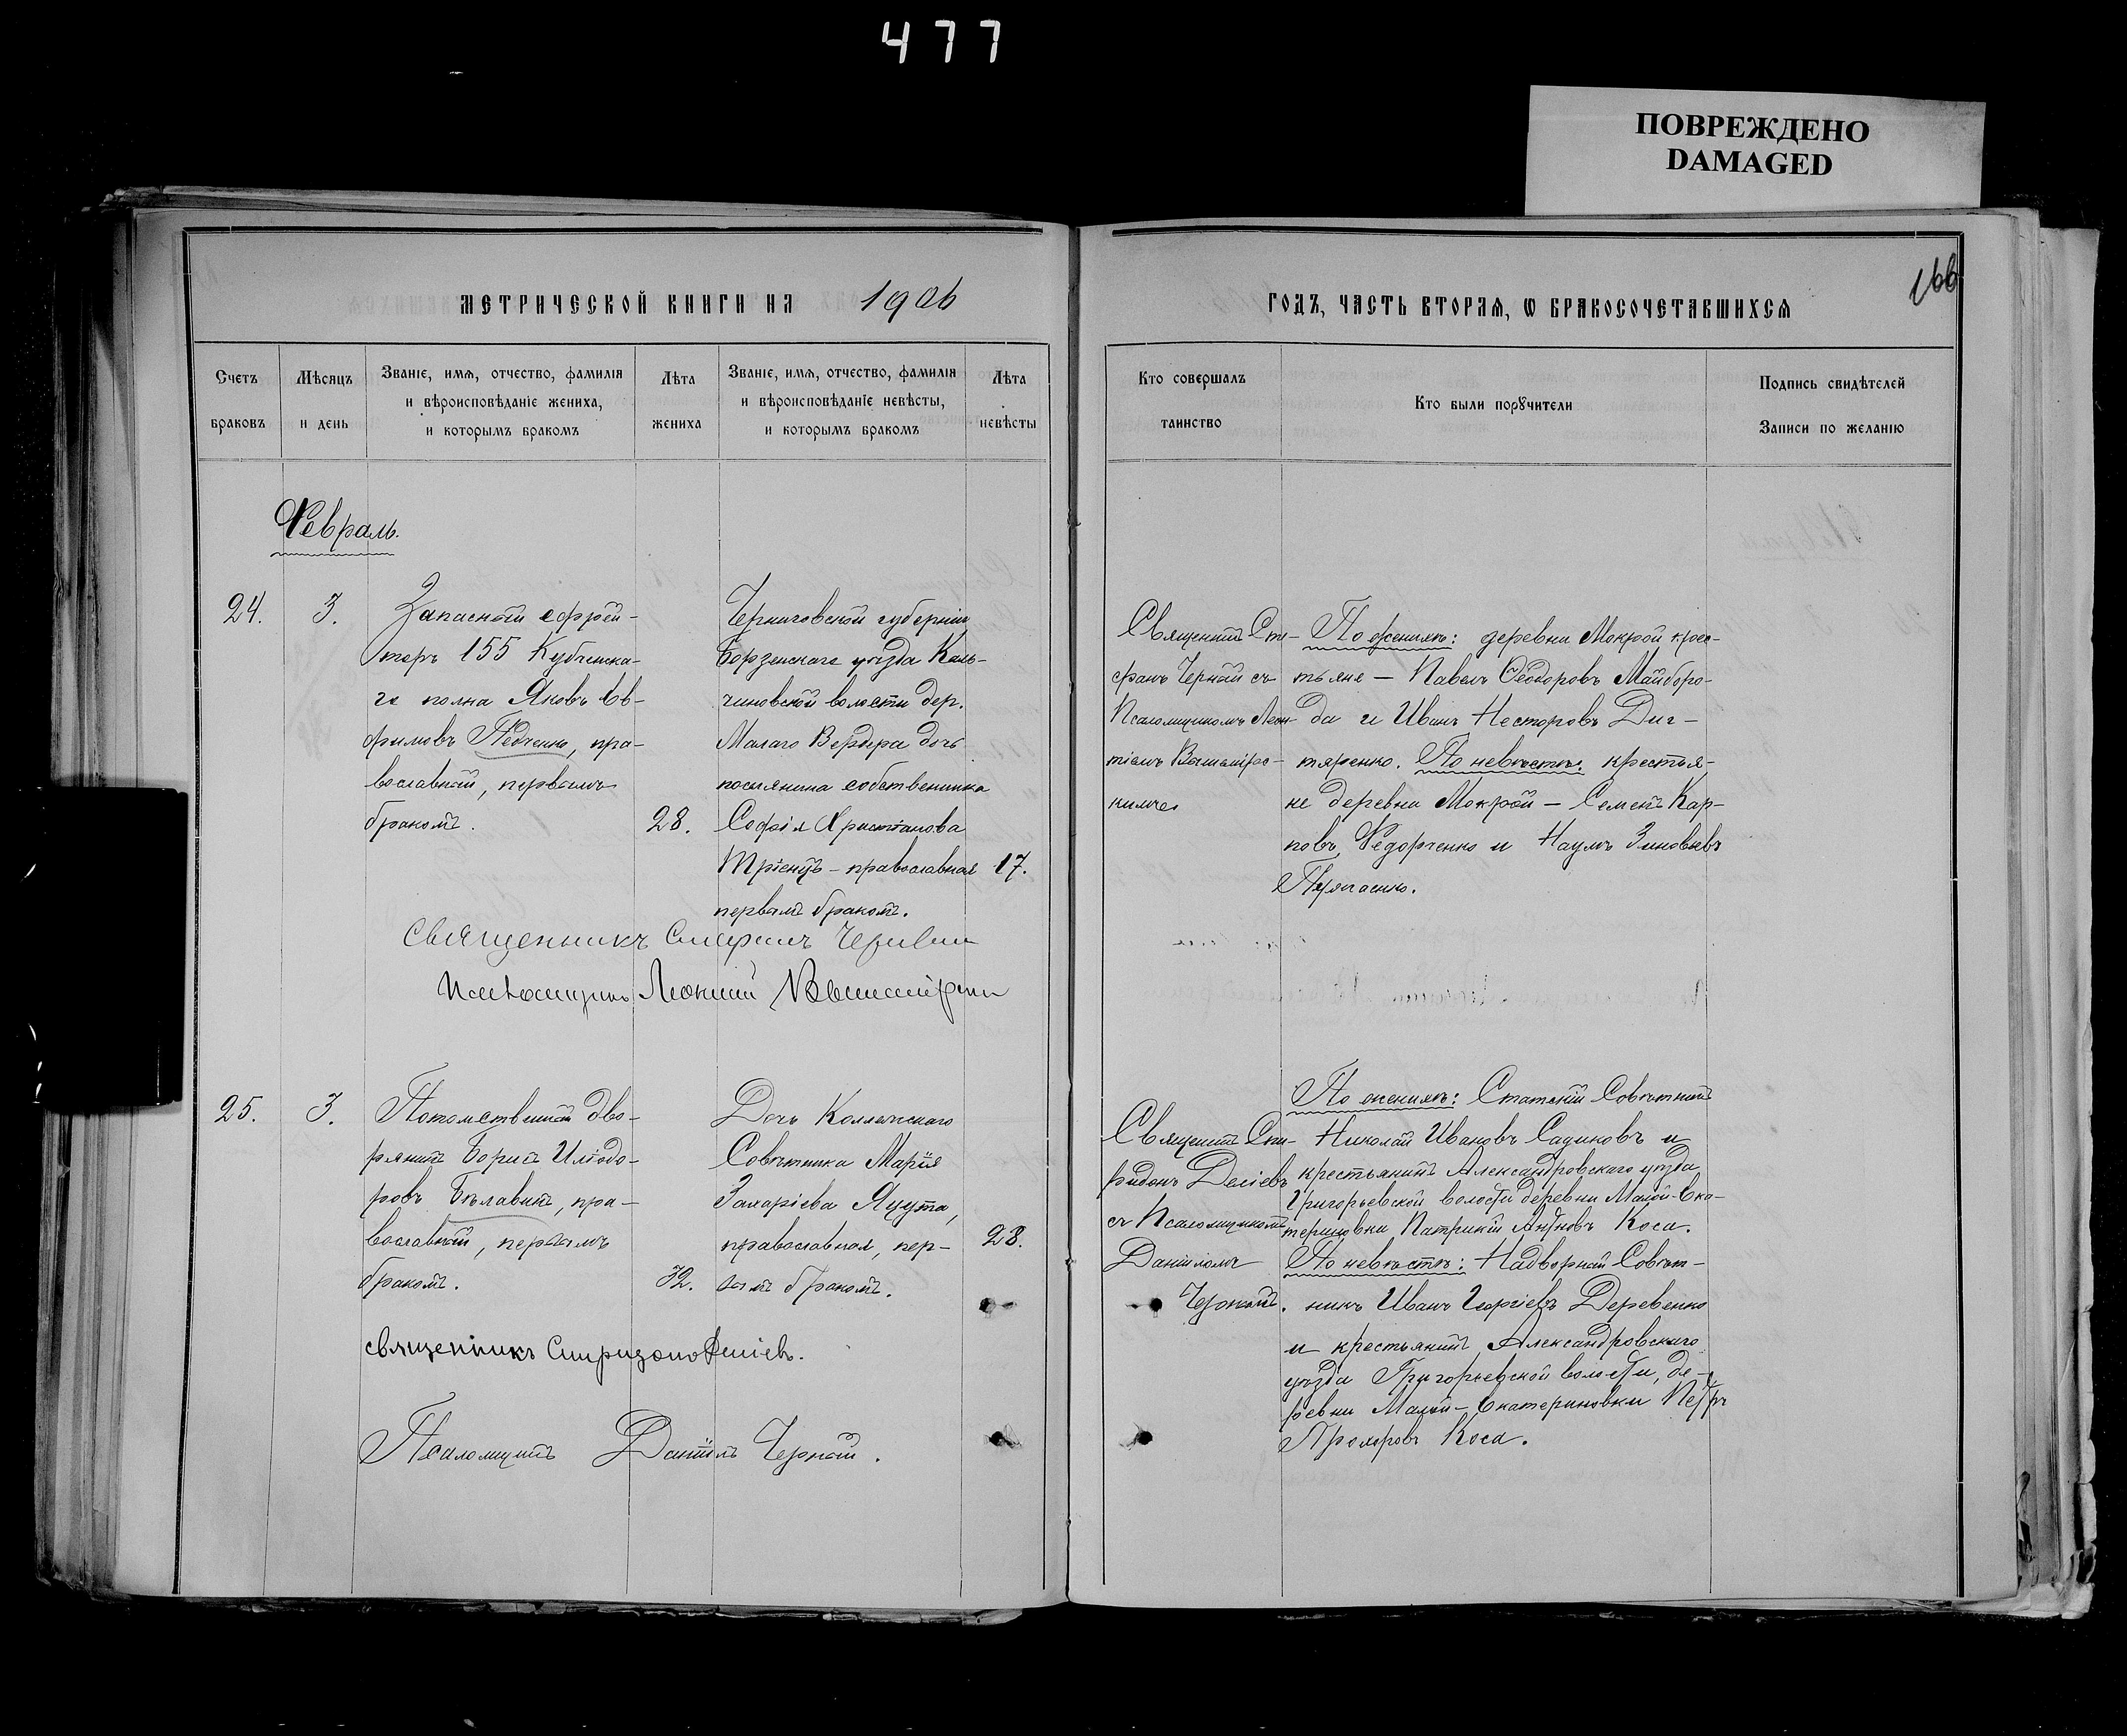 477
ПОВРЕЖДЕНО
DAMAGED
166
МЕТРИЧЕСКОЙ КНИГИ НА 1906
ГОДЪ, ЧАСТЬ ВТОРАЯ, Ѡ БРАКОСОЧЕТАВШИХСЯ
Счетъ браковъ
Мѣсяцъ и день
Званіе, имя, отчество, фамилія и вѣроисповѣданіе жениха, и которымъ бракомъ
Лѣта жениха
Званіе, имя, отчество, фамилія и вѣроисповѣданіе невѣсты, и которымъ бракомъ
Лѣта невѣсты
Кто совершалъ таинство
Кто были порꙋчители
Подпись свидѣтелей Записи по желанію
Февраль
24.
3.
Запасный ефрей-
торъ 155 Кубинска-
го полка Яковъ Ев-
фимовъ пра-
вославный, первымъ
бракомъ.
28.
Черниговской губерніи
Борзенскаго уѣзда Каль-
чиновской волости дер.
Малаго Вердера дочь
поселянина собственника
Софія Христіанова
православная
первымъ бракомъ.
17.
Священникъ Сте-
фанъ Черный съ
Псаломщикомъ Леон-
тіемъ
По женихѣ: деревни Мокрой крес-
тьяне — Павелъ Ѳеодоровъ Майборо-
да и Иванъ Несторовъ Дег-
тяренко. По невѣстѣ: крестья-
не деревни Мокрой — Семенъ Кар-
повъ Федорченко и Наумъ Зиновьевъ
Священникъ Стефанъ
Псаломщикъ Леонтій
25.
3.
Потомственный дво-
рянинъ Борисъ Иліодо-
ровъ Бѣлавинъ, пра-
вославный, первымъ
бракомъ.
32.
Дочь Коллежскаго
Совѣтника Марія
Захаріева Яцута,
православная, пер-
вымъ бракомъ.
28.
Священникъ Спи-
ридонъ Деліевъ
съ Псаломщикомъ
Даніиломъ
Чернымъ.
По женихѣ: Статскій Совѣтникъ
Николай Ивановъ Садиковъ и
крестьянинъ Александровскаго уѣзда
Григорьевской волости деревни Малой-Ека-
териновки Патрикій Коса.
По невѣстѣ: Надворный Совѣт-
никъ Иванъ Георгіевъ Деревенко
и крестьянинъ Александровскаго
уѣзда Григорьевской волости, де-
ревни Малой-Екатериновки Петръ
Прохоровъ Коса.
священникъ Спиридонъ Деліевъ.
Псаломщикъ Даніилъ Черный.